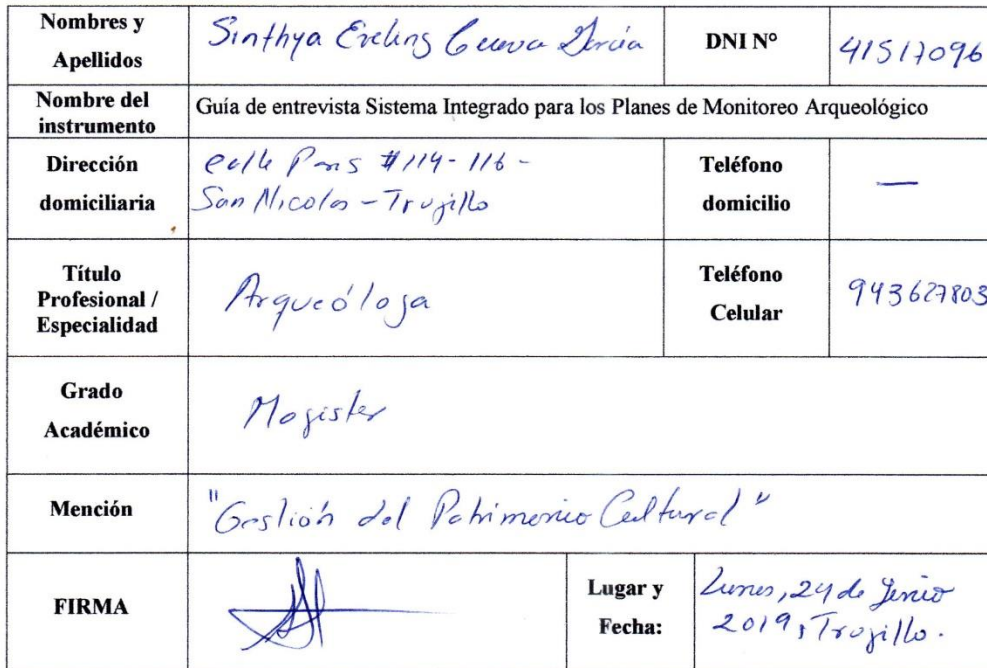 Nombres y Apellidos
Sinthya Eveling Cueva García
DNI N°
41517096
Nombre del instrumento
Guía de entrevista Sistema Integrado para los Planes de Monitoreo Arqueológico
Dirección domiciliaria
Calle Paris #114-116 -
San Nicolas - Trujillo
Teléfono domicilio
—
Título Profesional / Especialidad
Arqueóloga
Teléfono Celular
943627803
Grado Académico
Magister
Mención
"Gestión del Patrimonio Cultural"
FIRMA
Lugar y Fecha:
Lunes, 24 de Junio
2019, Trujillo.